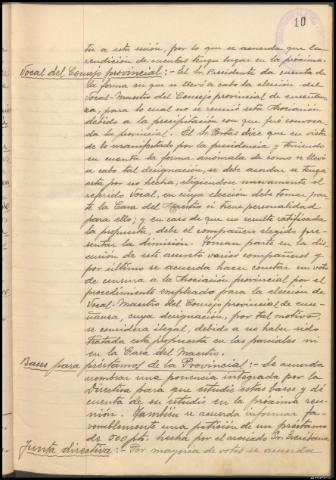 10
te a esta sesión, por lo que se acuerda que la
rendición de cuentas tenga lugar en la próxima.
Vocal del Consejo provincial:- El Sr. Presidente da cuenta de
la forma en que se llevó a cabo la elección del
Vocal-Maestro del Consejo provincial de enseñan-
za, para lo cual no se reunió esta Asociación
debido a la precipitación con que fué convoca-
da la provincial. El Sr. Portis dice que en vista
de lo manifestado por la presidencia y teniendo
en cuenta la forma anómala de como se llevó
a cabo tal designación, se debe acordar se tenga
esta por no hecha, eligiendose nuevamente el
referido Vocal, en cuya elección debe tomar par-
te la Casa del Maestro si tiene personalidad
para ello; y en caso de que no resulte ratificada
la propuesta, debe el compañero elegido pre-
sentar la dimisión. Toman parte en la dis-
cusión de este asunto varios compañeros y
por último se acuerda hacer constar un voto
de censura a la Asociación provincial por el
procedimiento empleado para la elección de
Vocal-Maestro del Consejo provincial de ense-
ñanza, cuya designación, por tal motivo,
se considera ilegal, debido a no haber sido
tratada esta propuesta en las parciales ni
en la Casa del Maestro.
Bases para préstamos de la Provincial:- Se acuerda
nombrar una ponencia integrada por la
Directiva para que estudie estas bases y dé
cuenta de su estudio en la próxima reu-
nión. También se acuerda informar fa-
vorablemente una petición de un préstamo
de 500 pts. hecha por el asociado Sr.
Junta directiva:- Por mayoría de votos se acuerda